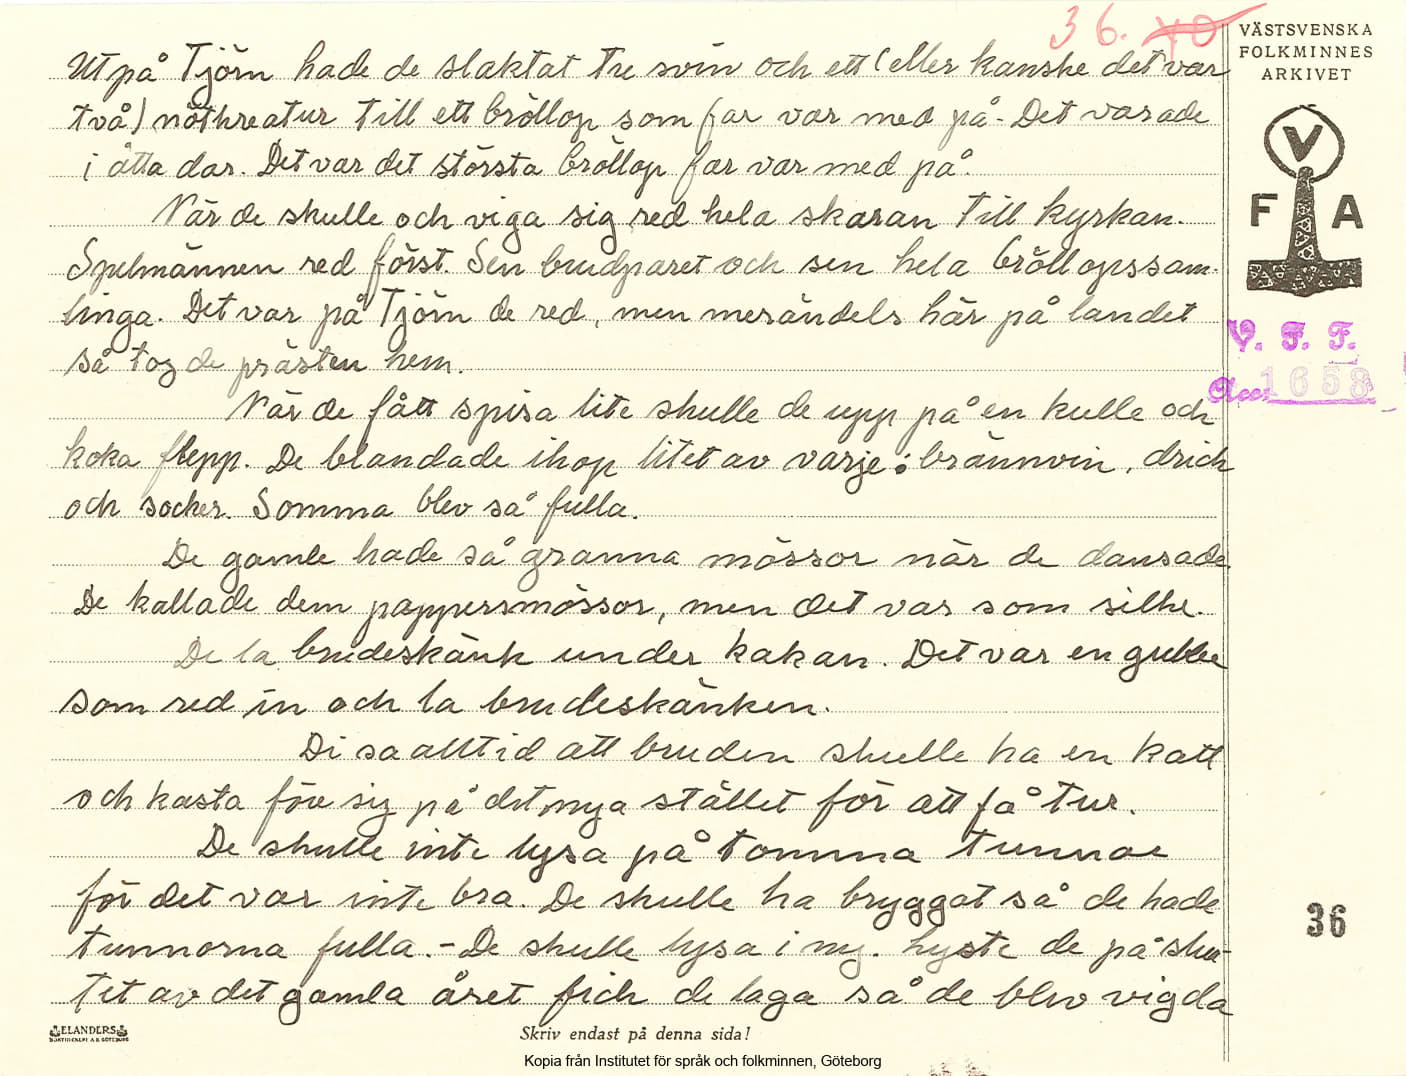 36. 40
VÄSTSVENSKA
FOLKMINNES
ARKIVET
V
F A
V. F. F.
Acc. 1658
Ut på Tjörn hade de slaktat tre svin och ett (eller kanske det var
två) nötkreatur till ett bröllop som far var med på. Det varade
i åtta dar. Det var det största bröllop far var med på.
När de skulle och viga sig red hela skaran till kyrkan.
Spelmännen red först. Sen brudparet och sen hela bröllopssam-
linga. Det var på Tjörn de red, men merändels här på landet
så tog de prästen hem.
När de fått spisa lite skulle de upp på en kulle och
koka flepp. De blandade ihop litet av varje: brännvin, drick
och socker. Somma blev så fulla.
De gamle hade så granna mössor när de dansade
De kallade dem pappersmössor, men det var som silke.
De la brudeskänk under kakan. Det var en gubbe
som red in och la brudeskänken.
Di sa alltid att bruden skulle ha en katt
och kasta före sig på det nya stället för att få tur.
De skulle inte lysa på tomma tunnor
för det var inte bra. De skulle ha bryggat så de hade
tunnorna fulla. - De skulle lysa i ny. Lyste de på slu-
tet av det gamla året fick de laga så de blev vigda
36
ELANDERS
BOKTRYCKERI A.B. GÖTEBORG
Skriv endast på denna sida!
Kopia från Institutet för språk och folkminnen, Göteborg